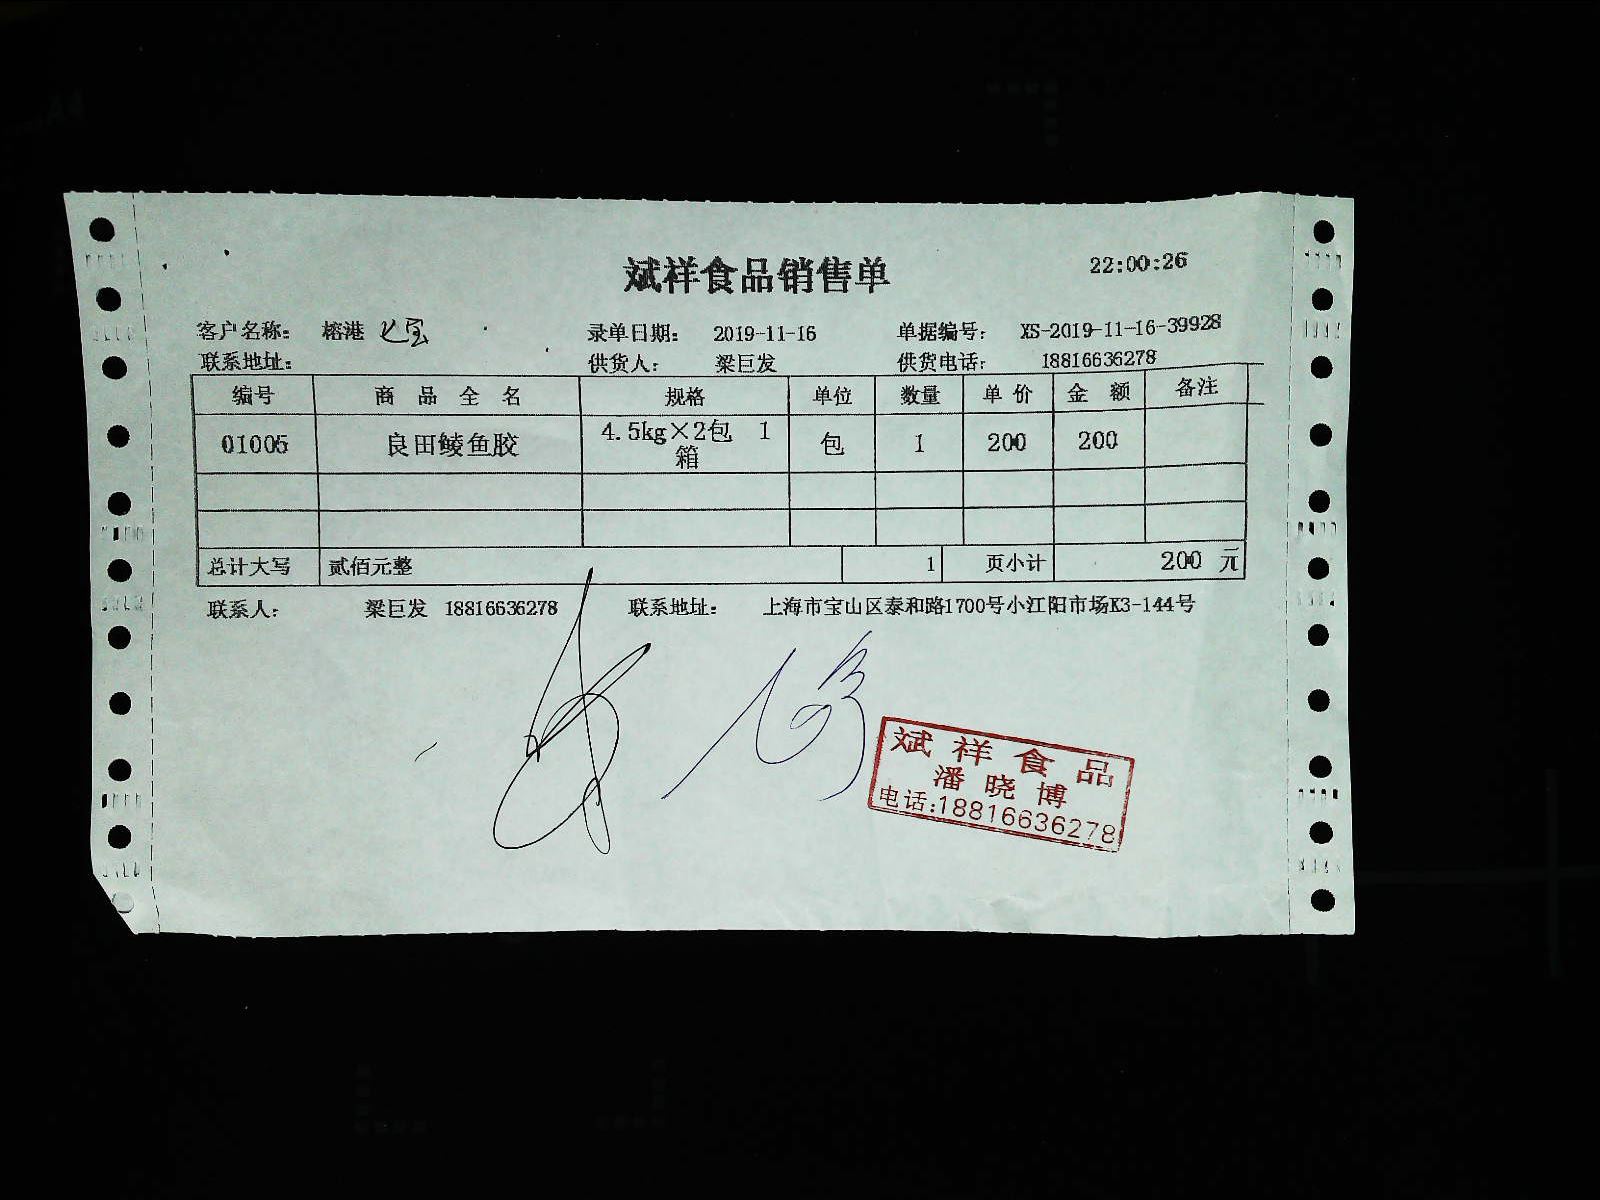 斌祥食品销售单 22:00:26
客户名称: 榕港 七宝 录单日期: 2019-11-16 单据编号: XS-2019-11-16-39928
联系地址: 供货人: 梁巨发 供货电话: 18816636278
编号 商品全名 规格 单位 数量 单价 金额 备注
01005 良田鲮鱼胶 4.5kg×2包 1箱 包 1 200 200
总计大写 贰佰元整 1 页小计 200 元
联系人: 梁巨发 18816636278 联系地址: 上海市宝山区泰和路1700号小江阳市场K3-144号
斌祥食品
潘晓博
电话:18816636278